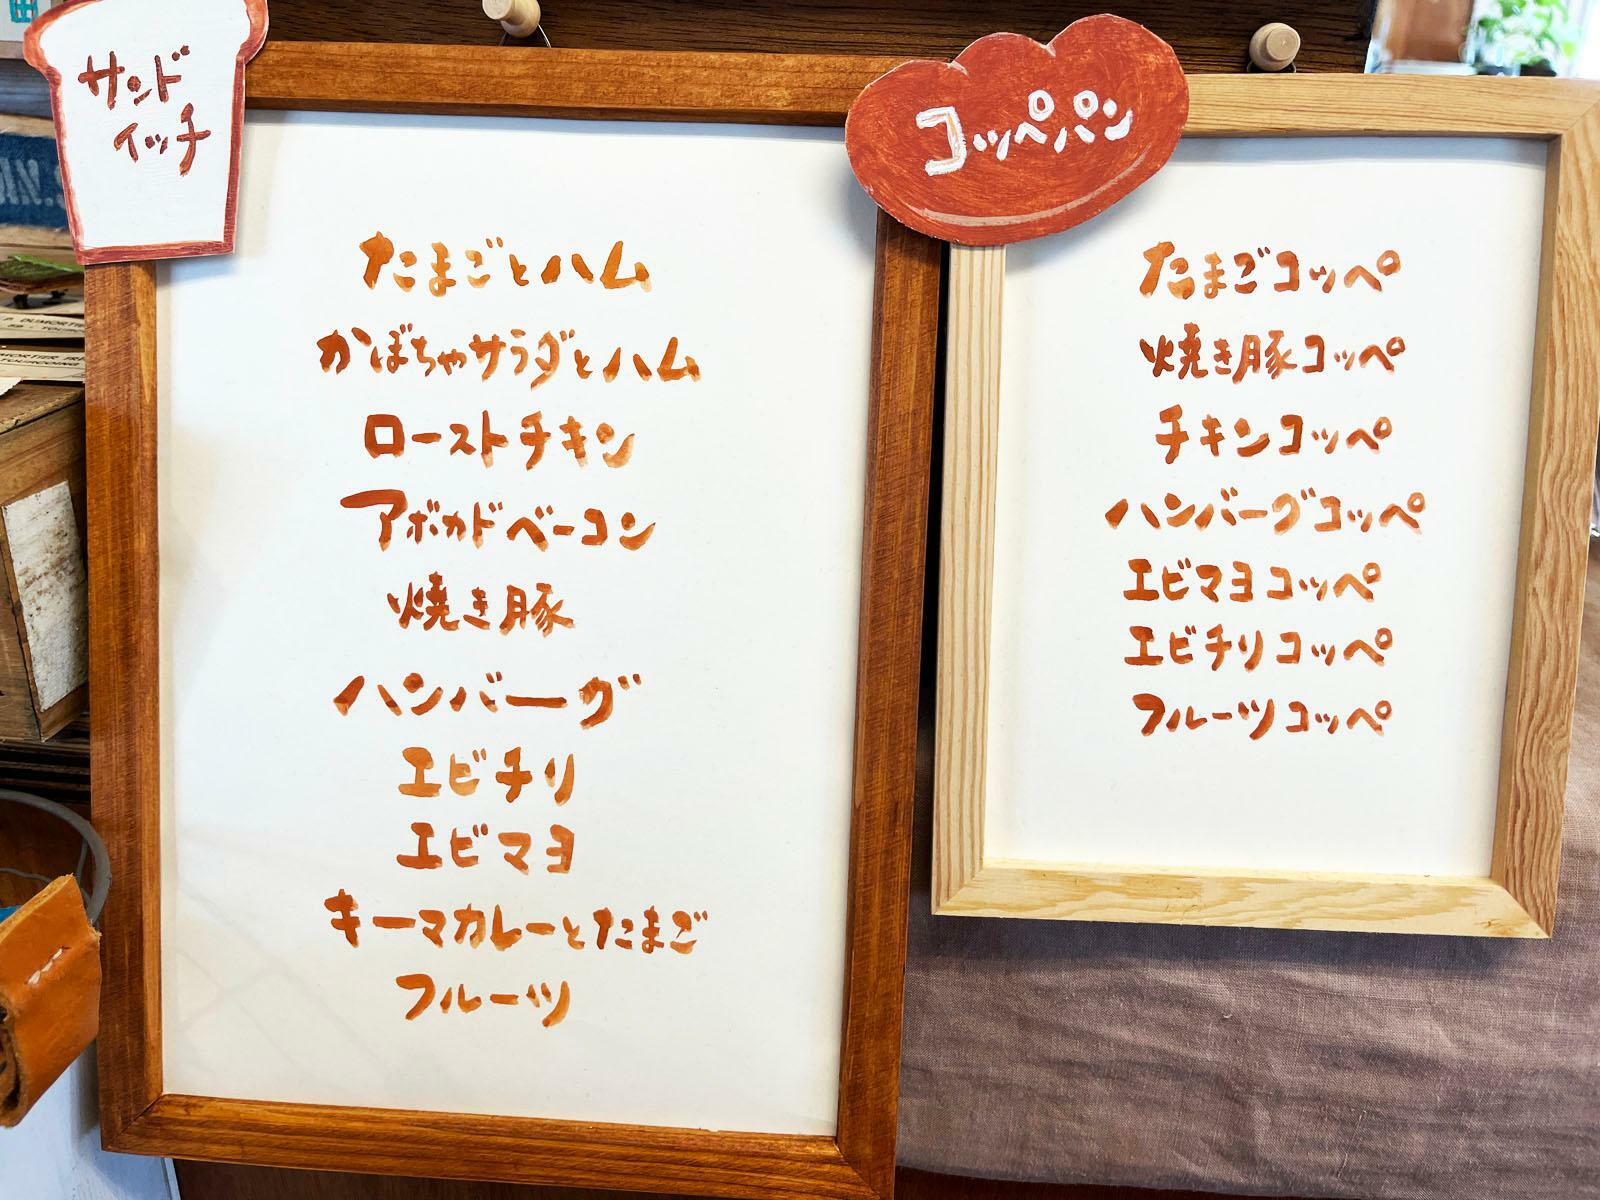 サンド
イッチ
たまごとハム
かぼちゃサラダとハム
ローストチキン
アボカドベーコン
焼き豚
ハンバーグ
エビチリ
エビマヨ
キーマカレーとたまご
フルーツ
コッペパン
たまごコッペ
焼き豚コッペ
チキンコッペ
ハンバーグコッペ
エビマヨコッペ
エビチリコッペ
フルーツコッペ